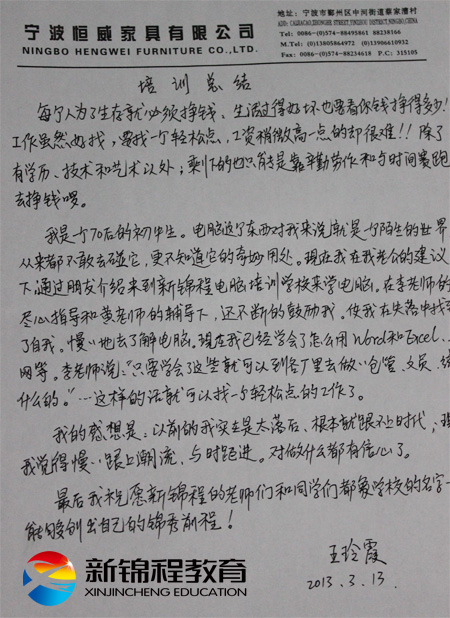 宁波恒威家具有限公司
NINGBO HENGWEI FURNITURE CO.,LTD.
地址：宁波市鄞州区中河街道蔡家漕村
ADD: CAIJIACAO, ZHONGHE STREET, YINZHOU DISTRICT, NINGBO, CHINA
Tel: 0086-(0)574-88495861 88238166
M.Tel: (0)13805864972 (0)13906610932
Fax: 0086-(0)574-88234618 P.C: 315105
培训总结
每个人为了生存就必须挣钱、生活过得好坏也要看你钱挣得多少!
工作虽然好找，要找一个轻松点，工资稍微高一点的却很难!! 除了
有学历、技术和艺术以外；剩下的也只能是靠辛勤劳作和与时间赛跑
去挣钱啰。
我是一个70后的初中生。电脑这个东西对我来说就是一个陌生的世界
从来都不敢去碰它，更不知道它的奇妙用处。现在我在我老公的建议
下通过朋友介绍来到新锦程电脑培训学校来学电脑。在李老师的
尽心指导和黄老师的辅导下，还不断的鼓励我。使我在失落中找
了自我。慢慢地去了解电脑。现在我已经学会了怎么用Word和Excel、
网等。李老师说："只要学会了这些就可以到各厂里去做仓管、文员、统
什么的。"…这样的话就可以找一个轻松点的工作了。
我的感想是：以前的我实在是太落后、根本就跟不上时代，现
我觉得慢慢跟上潮流，与时距进。对做什么都有信心了。
最后我祝愿新锦程的老师们和同学们都象学校的名字一
能够创出自己的锦秀前程！
王玲霞
2013.3.13.
新锦程教育
XINJINCHENG EDUCATION